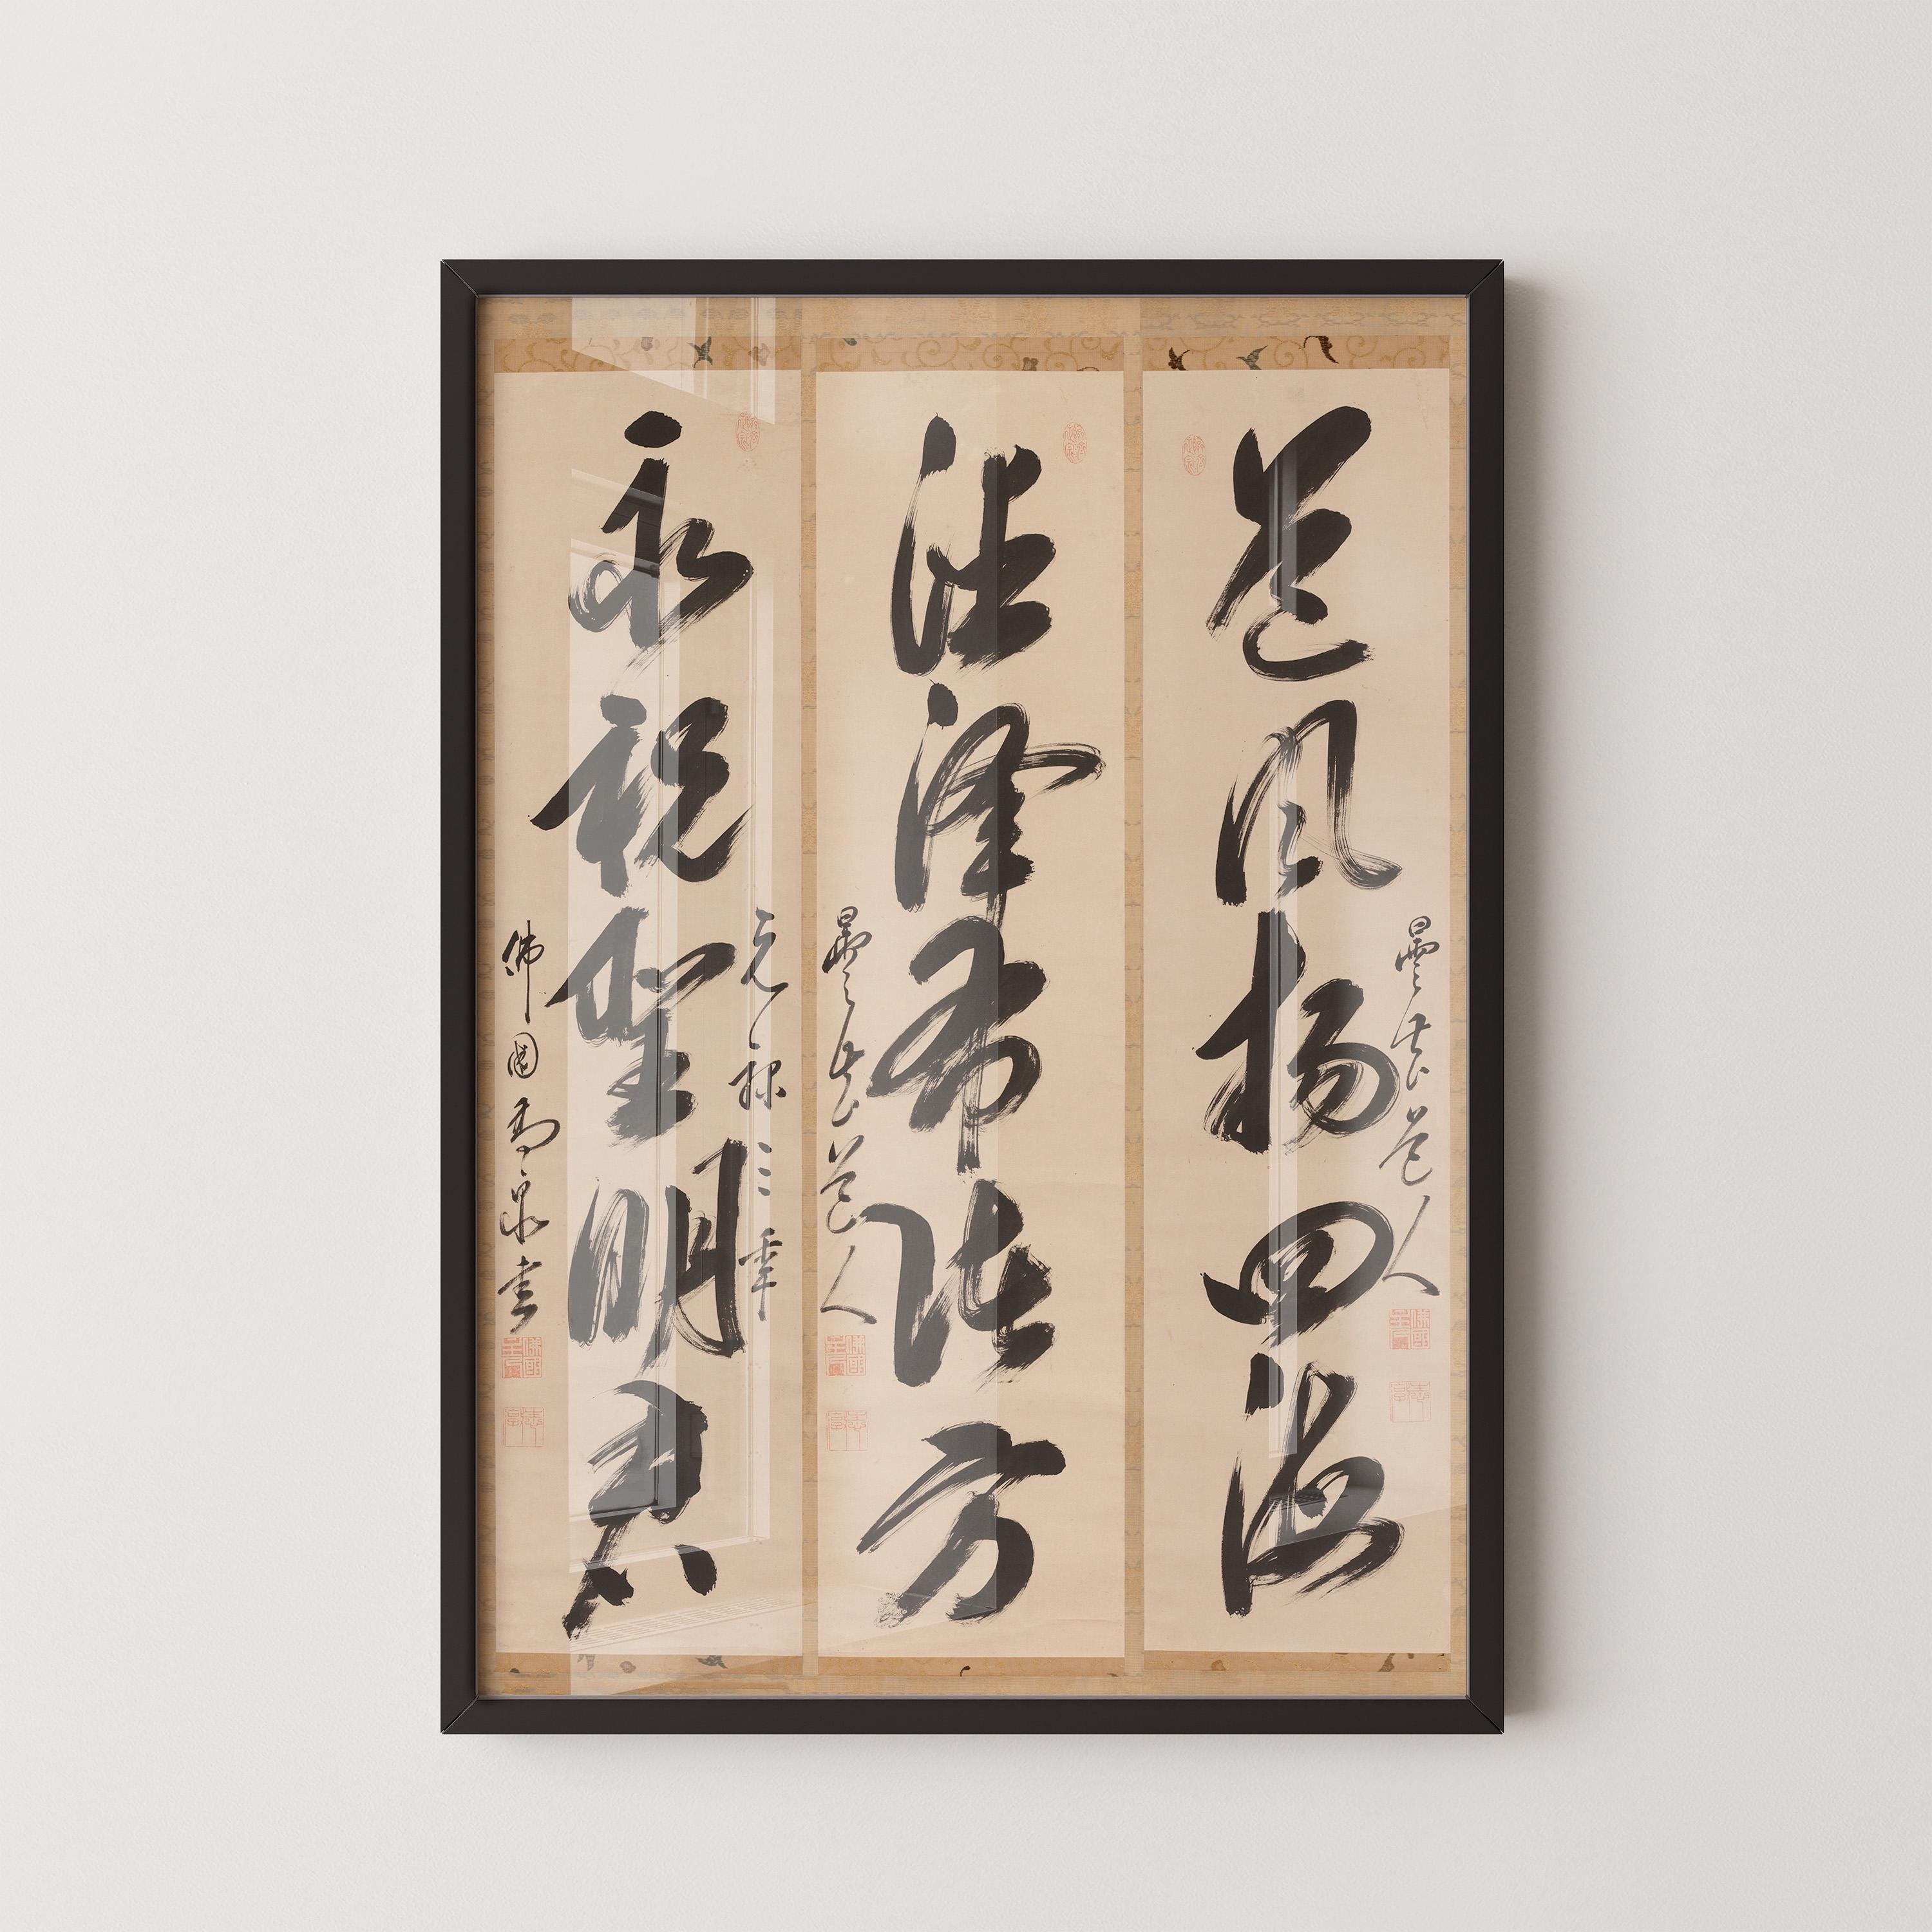 曇華道人
道風揚四海
法澤布諸方
曇華道人
元禄三年
永祝聖明君
佛國高泉書